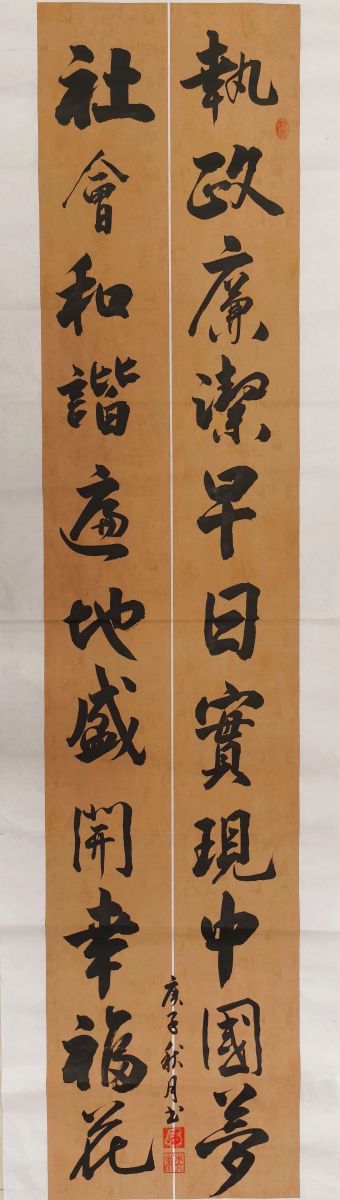 執政廉潔早日實現中國夢
社會和諧遍地盛開幸福花
庚子秋月书